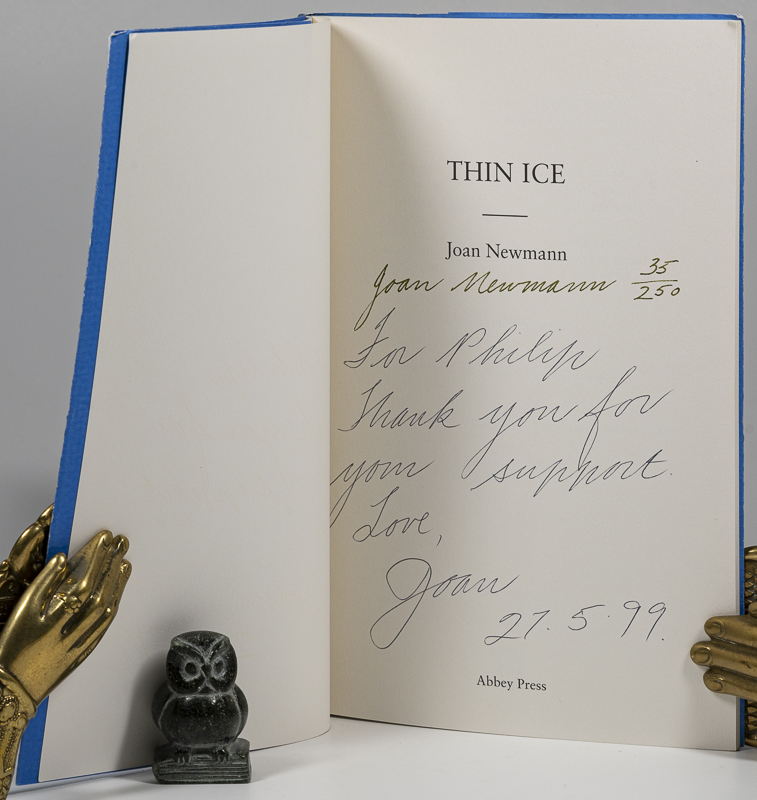 THIN ICE
Joan Newmann
Joan Newmann 35/250
For Philip
Thank you for
your support.
Love,
Joan
27.5.99.
Abbey Press